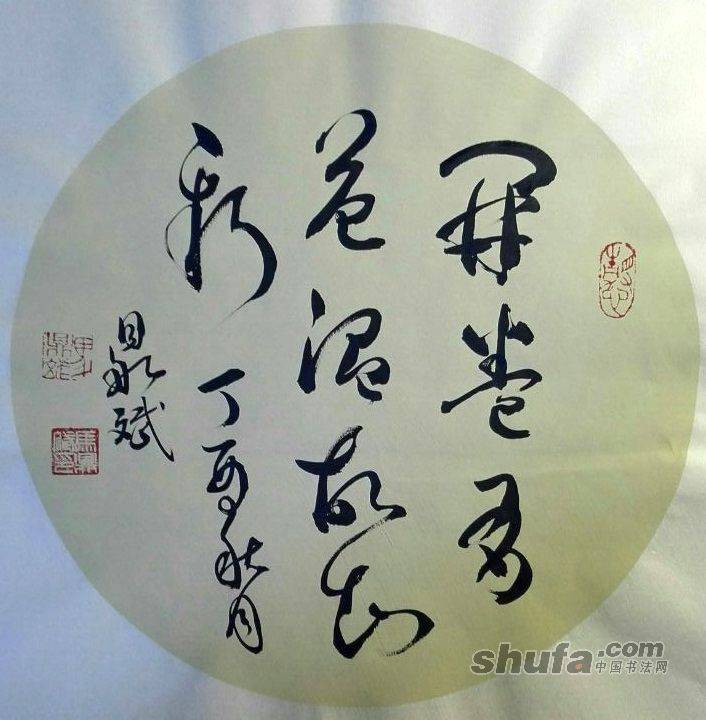 開卷有
益温故知
新 丁酉秋月
晨斌
shufa.com
中国书法网